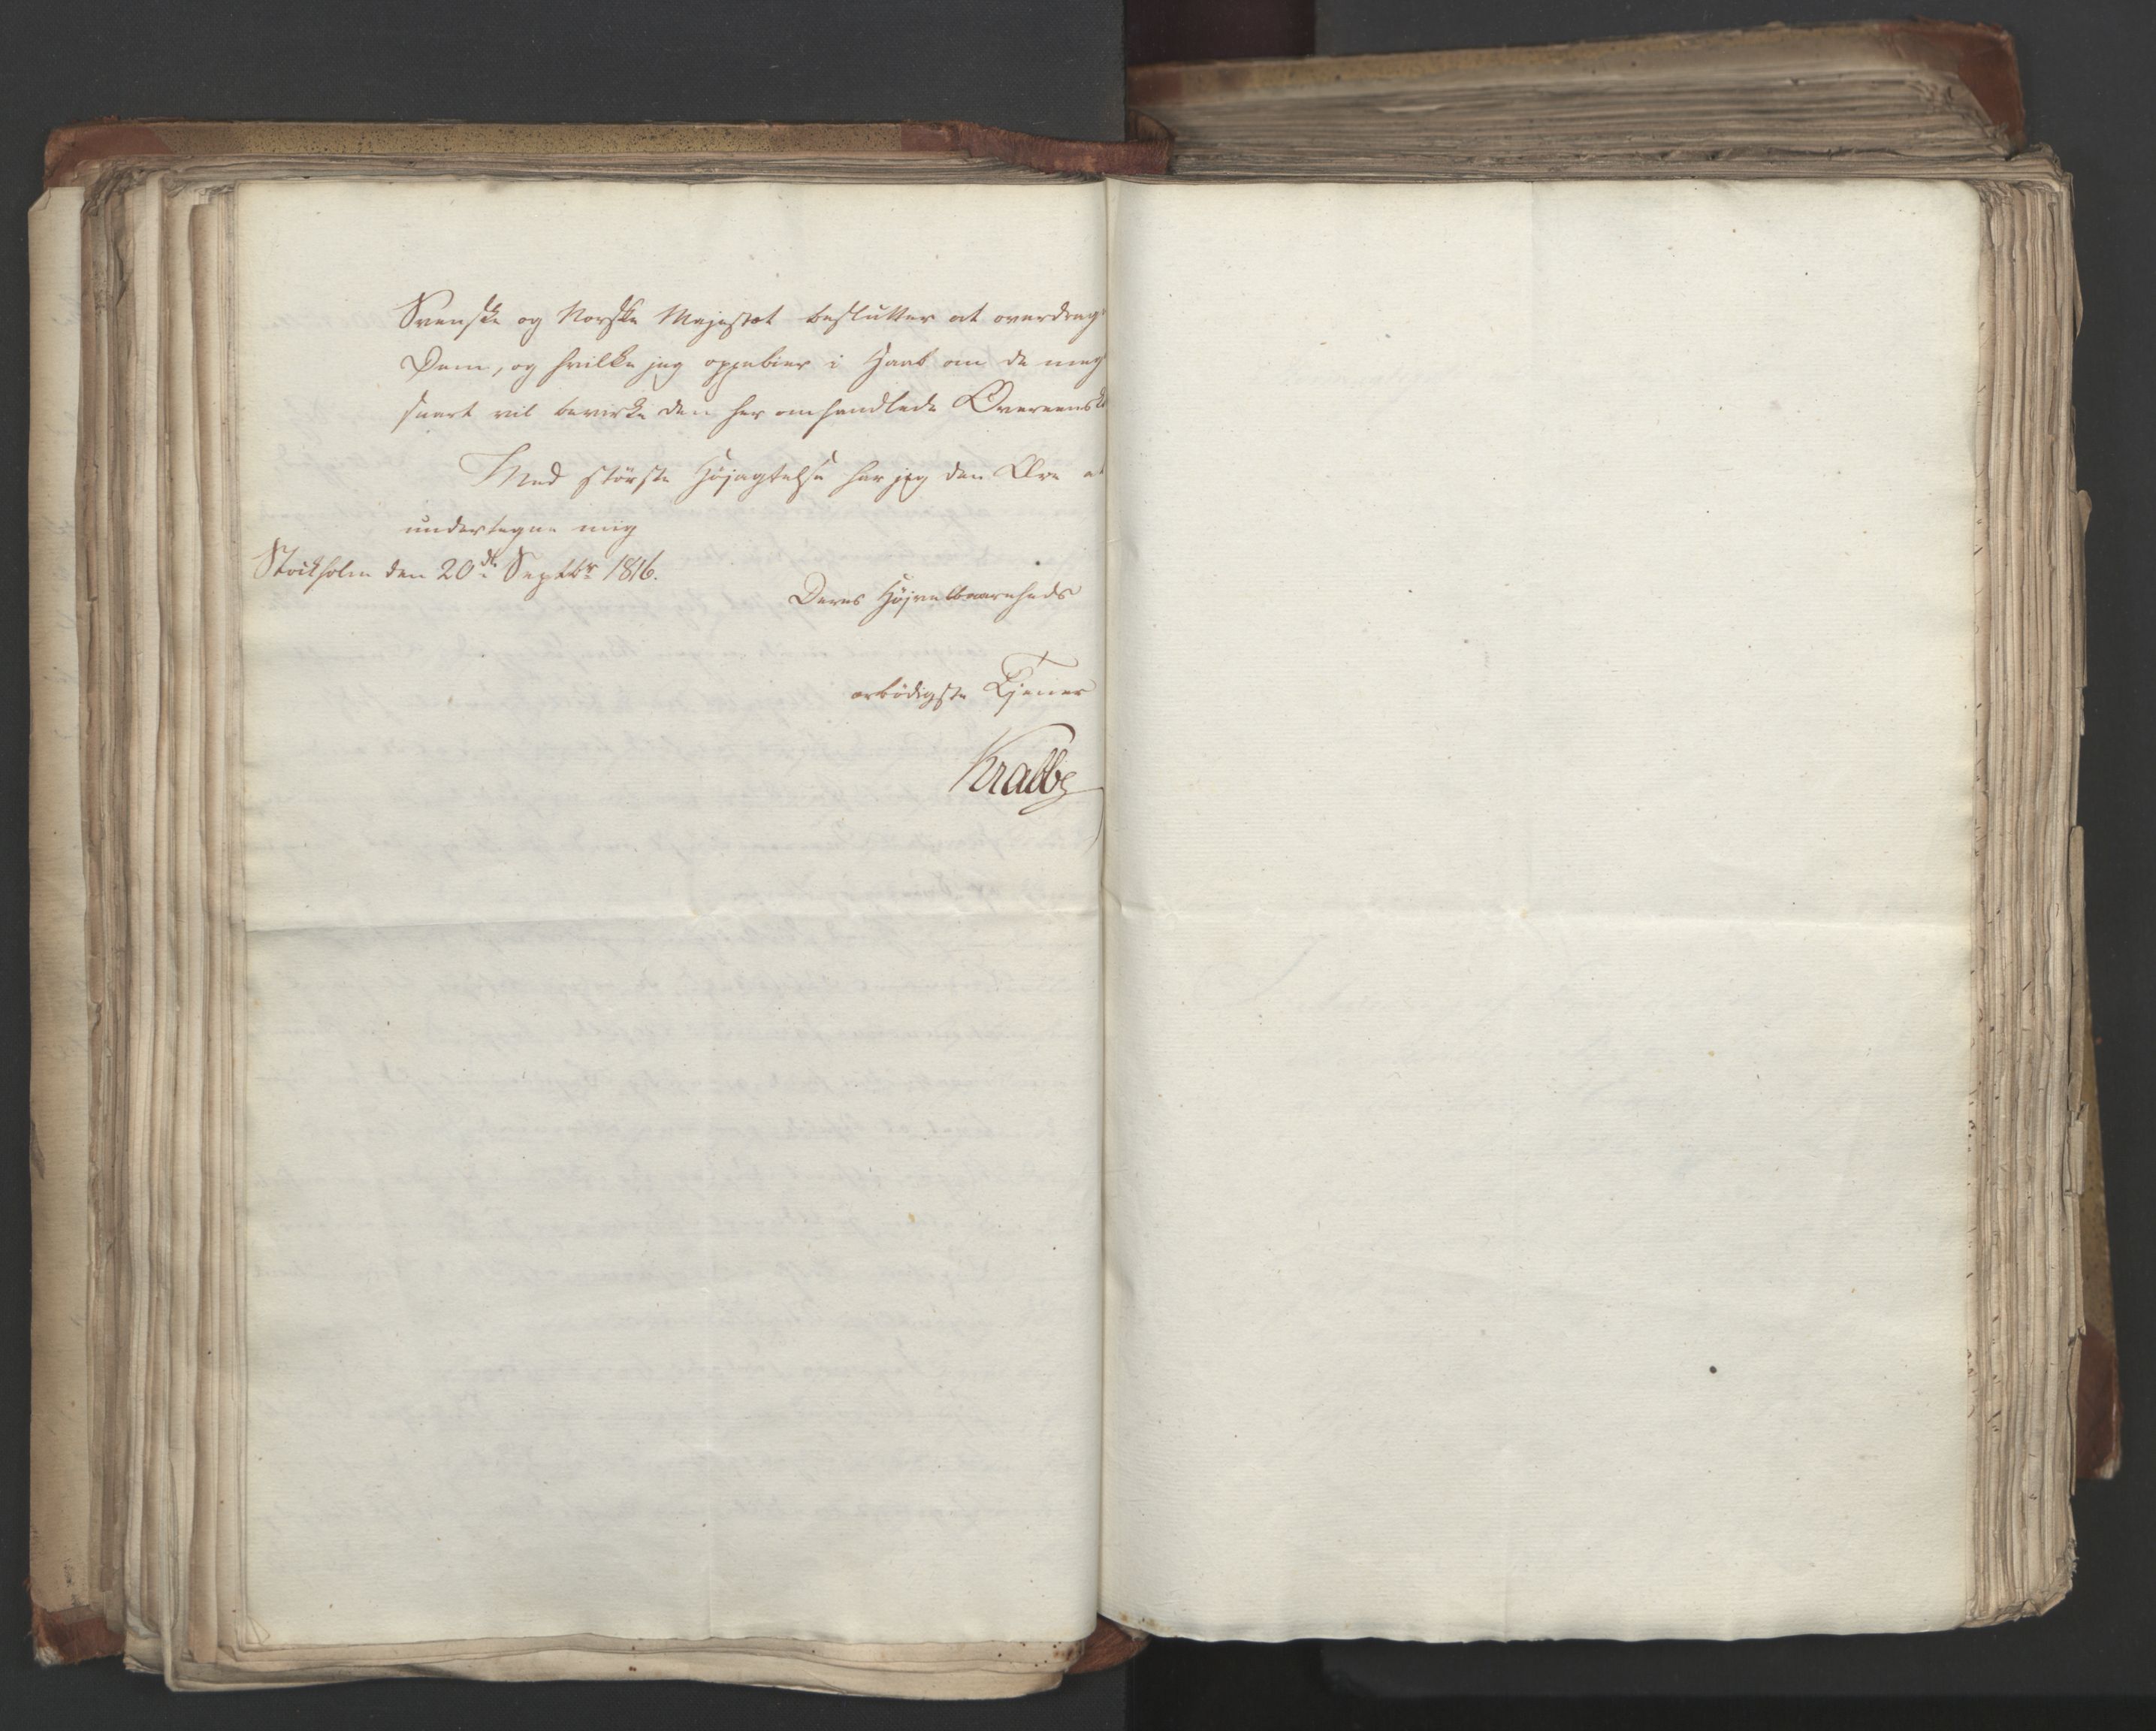 Svenske og Norske Majestæt beslutter at overdrag
Dem, og hvilke jeg oppebier i Haab om de meg
snart vil bevirke den her omhandlede Overeensk
Med største Højagtelse har jeg den Ære at
undertegne mig
Stockholm den 20de Septbr 1816.
Deres Højvelbaarenheds
ærbödigste Tjener
Krabbe